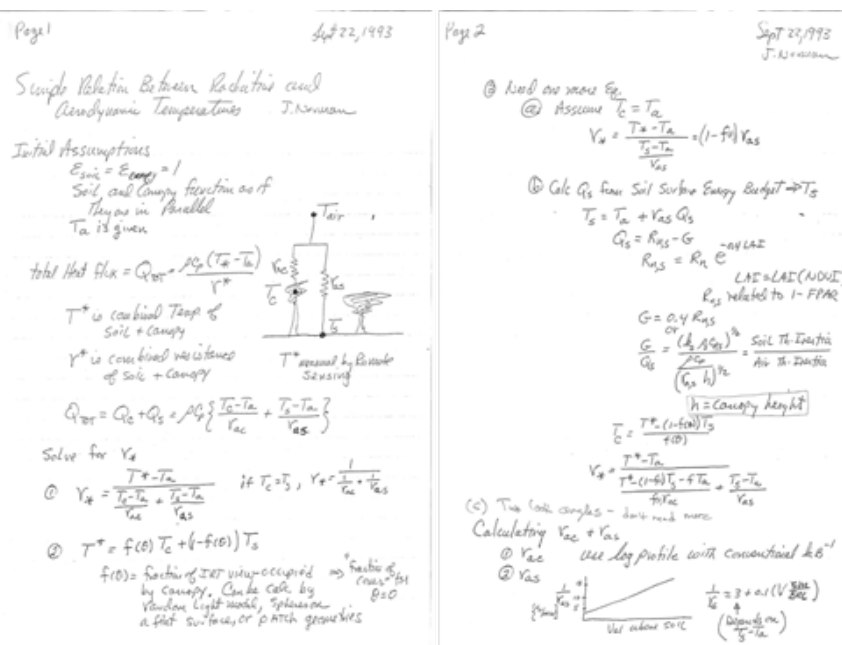 Page 1
Sept 22, 1993
Simple Relation Between Radiative and
Aerodynamic Temperatures J. Norman
Initial Assumptions
ε_soil = ε_canopy = 1
Soil and Canopy function as if
They are in Parallel
Ta is given
total Heat flux = Q_TOT = ρCp (T* - Ta) / r*
T* is combined Temp. of
soil + canopy
r* is combined resistance
of soil + canopy
T air
rac
ras
Tc
Ts
T* measured by Remote
Sensing
Q_TOT = Qc + Qs = ρCp { (Tc - Ta)/rac + (Ts - Ta)/ras }
Solve for r*
① r* = (T* - Ta) / ((Tc - Ta)/rac + (Ts - Ta)/ras) if Tc = Ts, r* = 1 / (1/rac + 1/ras)
② T* = f(θ) Tc + (1 - f(θ)) Ts
f(θ) = fraction of IRT view occupied ⇒ "fraction of
by canopy. Can be calc by cover" for
random light model, spheres on θ = 0
a flat surface, or patch geometries
Page 2
Sept 22, 1993
J. Norman
③ Need one more Eq.
ⓐ Assume Tc = Ta
r* = (T* - Ta) / ((Ts - Ta)/ras) = (1 - f(θ)) ras
ⓑ Calc Qs from Soil Surface Energy Budget ⇒ Ts
Ts = Ta + ras Qs
Qs = Rn,s - G
Rn,s = Rn e^
LAI = LAI (NDVI
Rn,s related to 1 - FPAR
G = 0.4 Rn,s
or
G/Qs = = Soil Th. Inertia / Air Th. Inertia
h = canopy height
Tc = (T* - (1 - f(θ)) Ts) / f(θ)
r* = (T* - Ta) / ((T* - (1 - f(θ)) Ts - f Ta)/(f(θ) rac) + (Ts - Ta)/ras)
(c) Two look angles - don't need more
Calculating rac + ras
① rac use log profile with conventional kB⁻¹
② ras
1/ras
Vel above soil
1/rs = 3 + 0.1 (V
(Depends on
Ts - Ta)